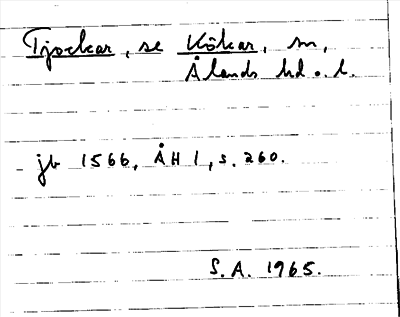 Tjockar, se Kökar, sn,
Ålands hd o. l.
jb 1566, ÅH 1, s. 260.
S.A. 1965.